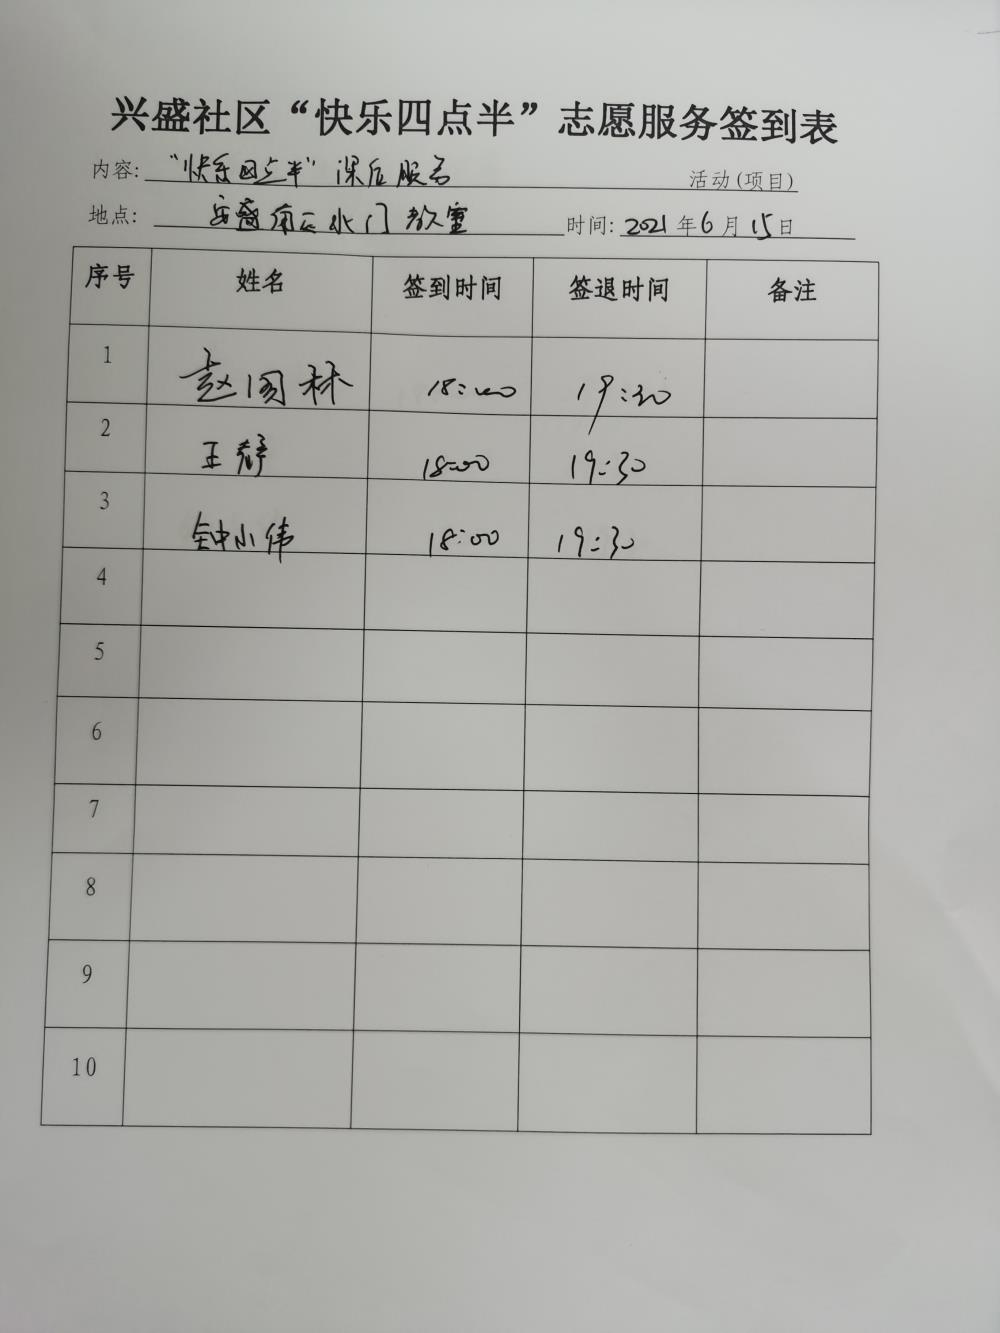 兴盛社区“快乐四点半”志愿服务签到表
内容: “快乐四点半”课后服务 活动(项目)
地点: 南 门教室 时间: 2021年6月15日
序号 姓名 签到时间 签退时间 备注
1 赵国林 18:00 19:30
2 王静 18:00 19:30
3 钟小伟 18:00 19:30
4
5
6
7
8
9
10